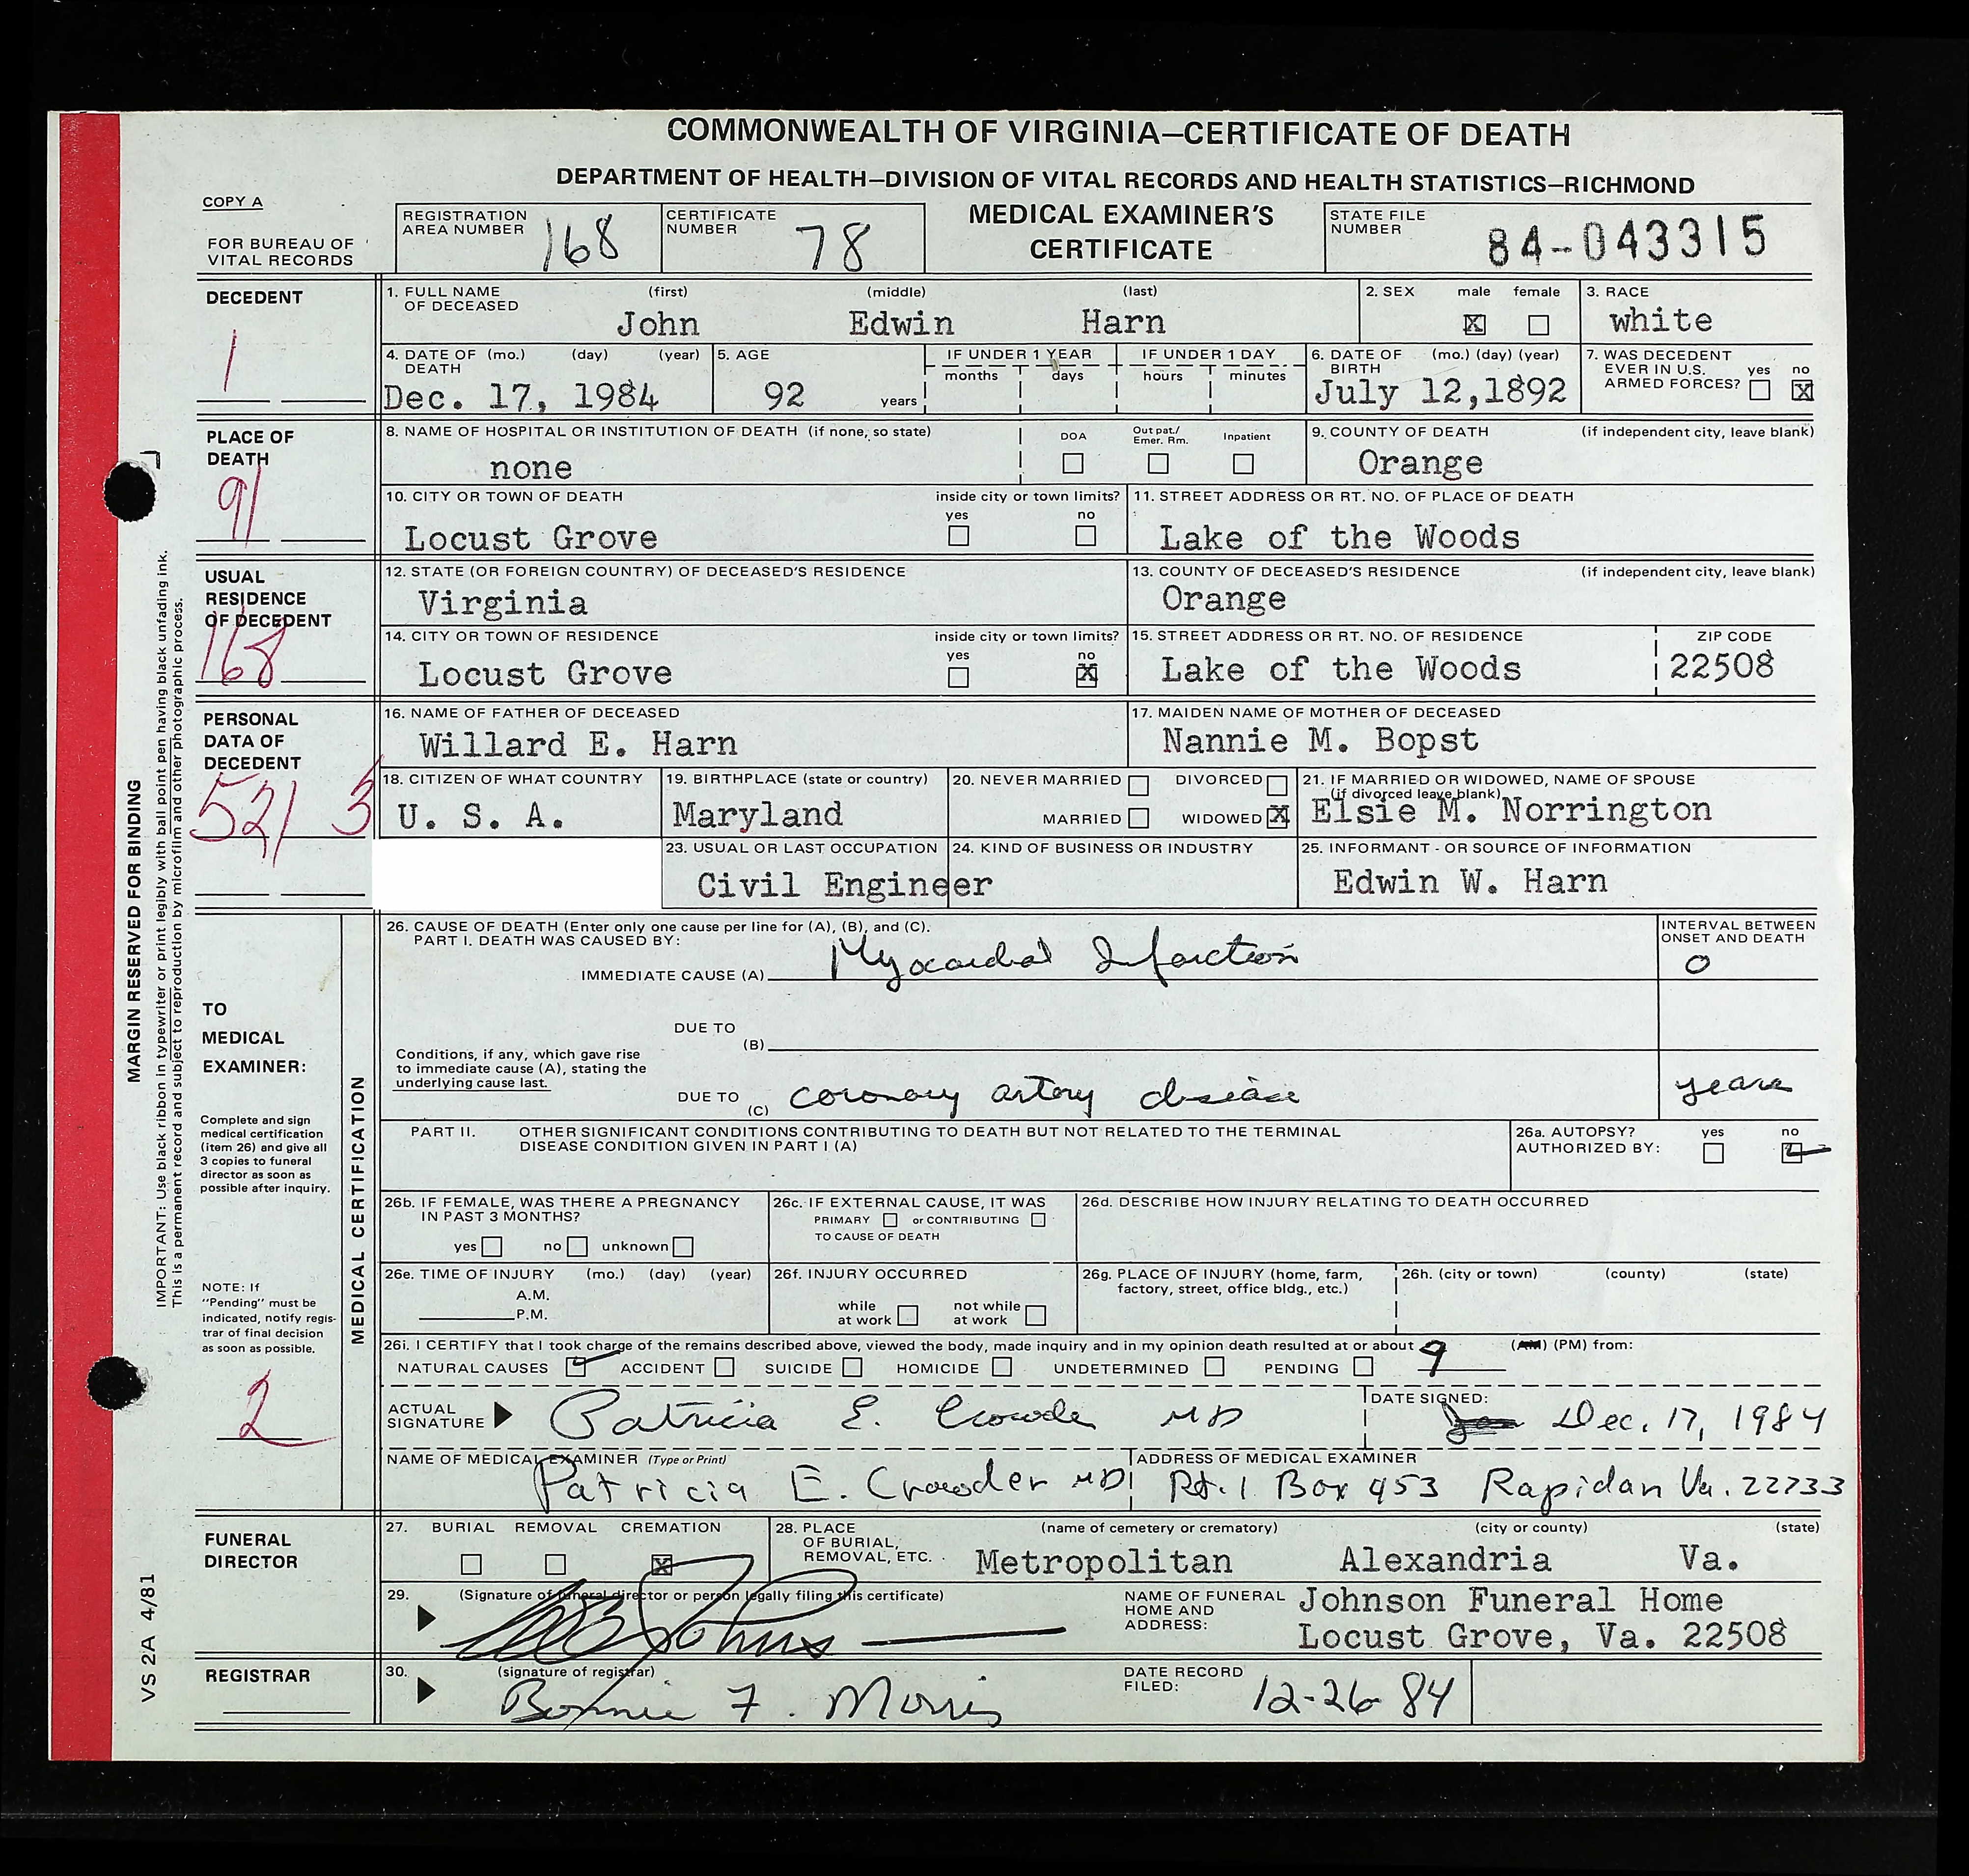 COMMONWEALTH OF VIRGINIA—CERTIFICATE OF DEATH
DEPARTMENT OF HEALTH—DIVISION OF VITAL RECORDS AND HEALTH STATISTICS—RICHMOND
COPY A
FOR BUREAU OF VITAL RECORDS
REGISTRATION AREA NUMBER 168
CERTIFICATE NUMBER 78
MEDICAL EXAMINER'S CERTIFICATE
STATE FILE NUMBER 84-043315
DECEDENT
1
1. FULL NAME OF DECEASED (first) (middle) (last)
John Edwin Harn
2. SEX male female
X
3. RACE
white
4. DATE OF DEATH (mo.) (day) (year)
Dec. 17, 1984
5. AGE
92 years
IF UNDER 1 YEAR
months days
IF UNDER 1 DAY
hours minutes
6. DATE OF BIRTH (mo.) (day) (year)
July 12,1892
7. WAS DECEDENT EVER IN U.S. ARMED FORCES? yes no
X
PLACE OF DEATH
91
8. NAME OF HOSPITAL OR INSTITUTION OF DEATH (if none, so state)
none
DOA Out pat./ Emer. Rm. Inpatient
9. COUNTY OF DEATH (if independent city, leave blank)
Orange
10. CITY OR TOWN OF DEATH inside city or town limits? yes no
Locust Grove
11. STREET ADDRESS OR RT. NO. OF PLACE OF DEATH
Lake of the Woods
USUAL RESIDENCE OF DECEDENT
168
12. STATE (OR FOREIGN COUNTRY) OF DECEASED'S RESIDENCE
Virginia
13. COUNTY OF DECEASED'S RESIDENCE (if independent city, leave blank)
Orange
14. CITY OR TOWN OF RESIDENCE inside city or town limits? yes no
Locust Grove X
15. STREET ADDRESS OR RT. NO. OF RESIDENCE ZIP CODE
Lake of the Woods 22508
PERSONAL DATA OF DECEDENT
521 3
16. NAME OF FATHER OF DECEASED
Willard E. Harn
17. MAIDEN NAME OF MOTHER OF DECEASED
Nannie M. Bopst
18. CITIZEN OF WHAT COUNTRY
U. S. A.
19. BIRTHPLACE (state or country)
Maryland
20. NEVER MARRIED DIVORCED
MARRIED WIDOWED X
21. IF MARRIED OR WIDOWED, NAME OF SPOUSE
(if divorced leave blank)
Elsie M. Norrington
23. USUAL OR LAST OCCUPATION
Civil Engineer
24. KIND OF BUSINESS OR INDUSTRY
25. INFORMANT - OR SOURCE OF INFORMATION
Edwin W. Harn
MARGIN RESERVED FOR BINDING
IMPORTANT: Use black ribbon in typewriter or print legibly with ball point pen having black unfading ink.
This is a permanent record and subject to reproduction by microfilm and other photographic process.
VS 2A 4/81
TO MEDICAL EXAMINER:
Complete and sign medical certification (item 26) and give all 3 copies to funeral director as soon as possible after inquiry.
NOTE: If "Pending" must be indicated, notify registrar of final decision as soon as possible.
2
MEDICAL CERTIFICATION
26. CAUSE OF DEATH (Enter only one cause per line for (A), (B), and (C).
PART I. DEATH WAS CAUSED BY:
INTERVAL BETWEEN ONSET AND DEATH
IMMEDIATE CAUSE (A) Myocardial Infarction 0
DUE TO (B)
Conditions, if any, which gave rise to immediate cause (A), stating the underlying cause last.
DUE TO (C) coronary artery disease years
PART II. OTHER SIGNIFICANT CONDITIONS CONTRIBUTING TO DEATH BUT NOT RELATED TO THE TERMINAL DISEASE CONDITION GIVEN IN PART I (A)
26a. AUTOPSY? yes no
AUTHORIZED BY:
26b. IF FEMALE, WAS THERE A PREGNANCY IN PAST 3 MONTHS?
yes no unknown
26c. IF EXTERNAL CAUSE, IT WAS
PRIMARY or CONTRIBUTING
TO CAUSE OF DEATH
26d. DESCRIBE HOW INJURY RELATING TO DEATH OCCURRED
26e. TIME OF INJURY (mo.) (day) (year)
A.M.
P.M.
26f. INJURY OCCURRED
while at work not while at work
26g. PLACE OF INJURY (home, farm, factory, street, office bldg., etc.)
26h. (city or town) (county) (state)
26i. I CERTIFY that I took charge of the remains described above, viewed the body, made inquiry and in my opinion death resulted at or about 9 (AM) (PM) from:
NATURAL CAUSES ACCIDENT SUICIDE HOMICIDE UNDETERMINED PENDING
ACTUAL SIGNATURE Patricia E. Crowder MD
DATE SIGNED: Dec. 17, 1984
NAME OF MEDICAL EXAMINER (Type or Print)
Patricia E. Crowder MD
ADDRESS OF MEDICAL EXAMINER
Rt. 1 Box 453 Rapidan Va. 22733
FUNERAL DIRECTOR
27. BURIAL REMOVAL CREMATION
X
28. PLACE OF BURIAL, REMOVAL, ETC. (name of cemetery or crematory) (city or county) (state)
Metropolitan Alexandria Va.
29. (Signature of funeral director or person legally filing this certificate)
NAME OF FUNERAL HOME AND ADDRESS:
Johnson Funeral Home
Locust Grove, Va. 22508
REGISTRAR
30. (signature of registrar)
Bonnie F. Morris
DATE RECORD FILED: 12-26-84